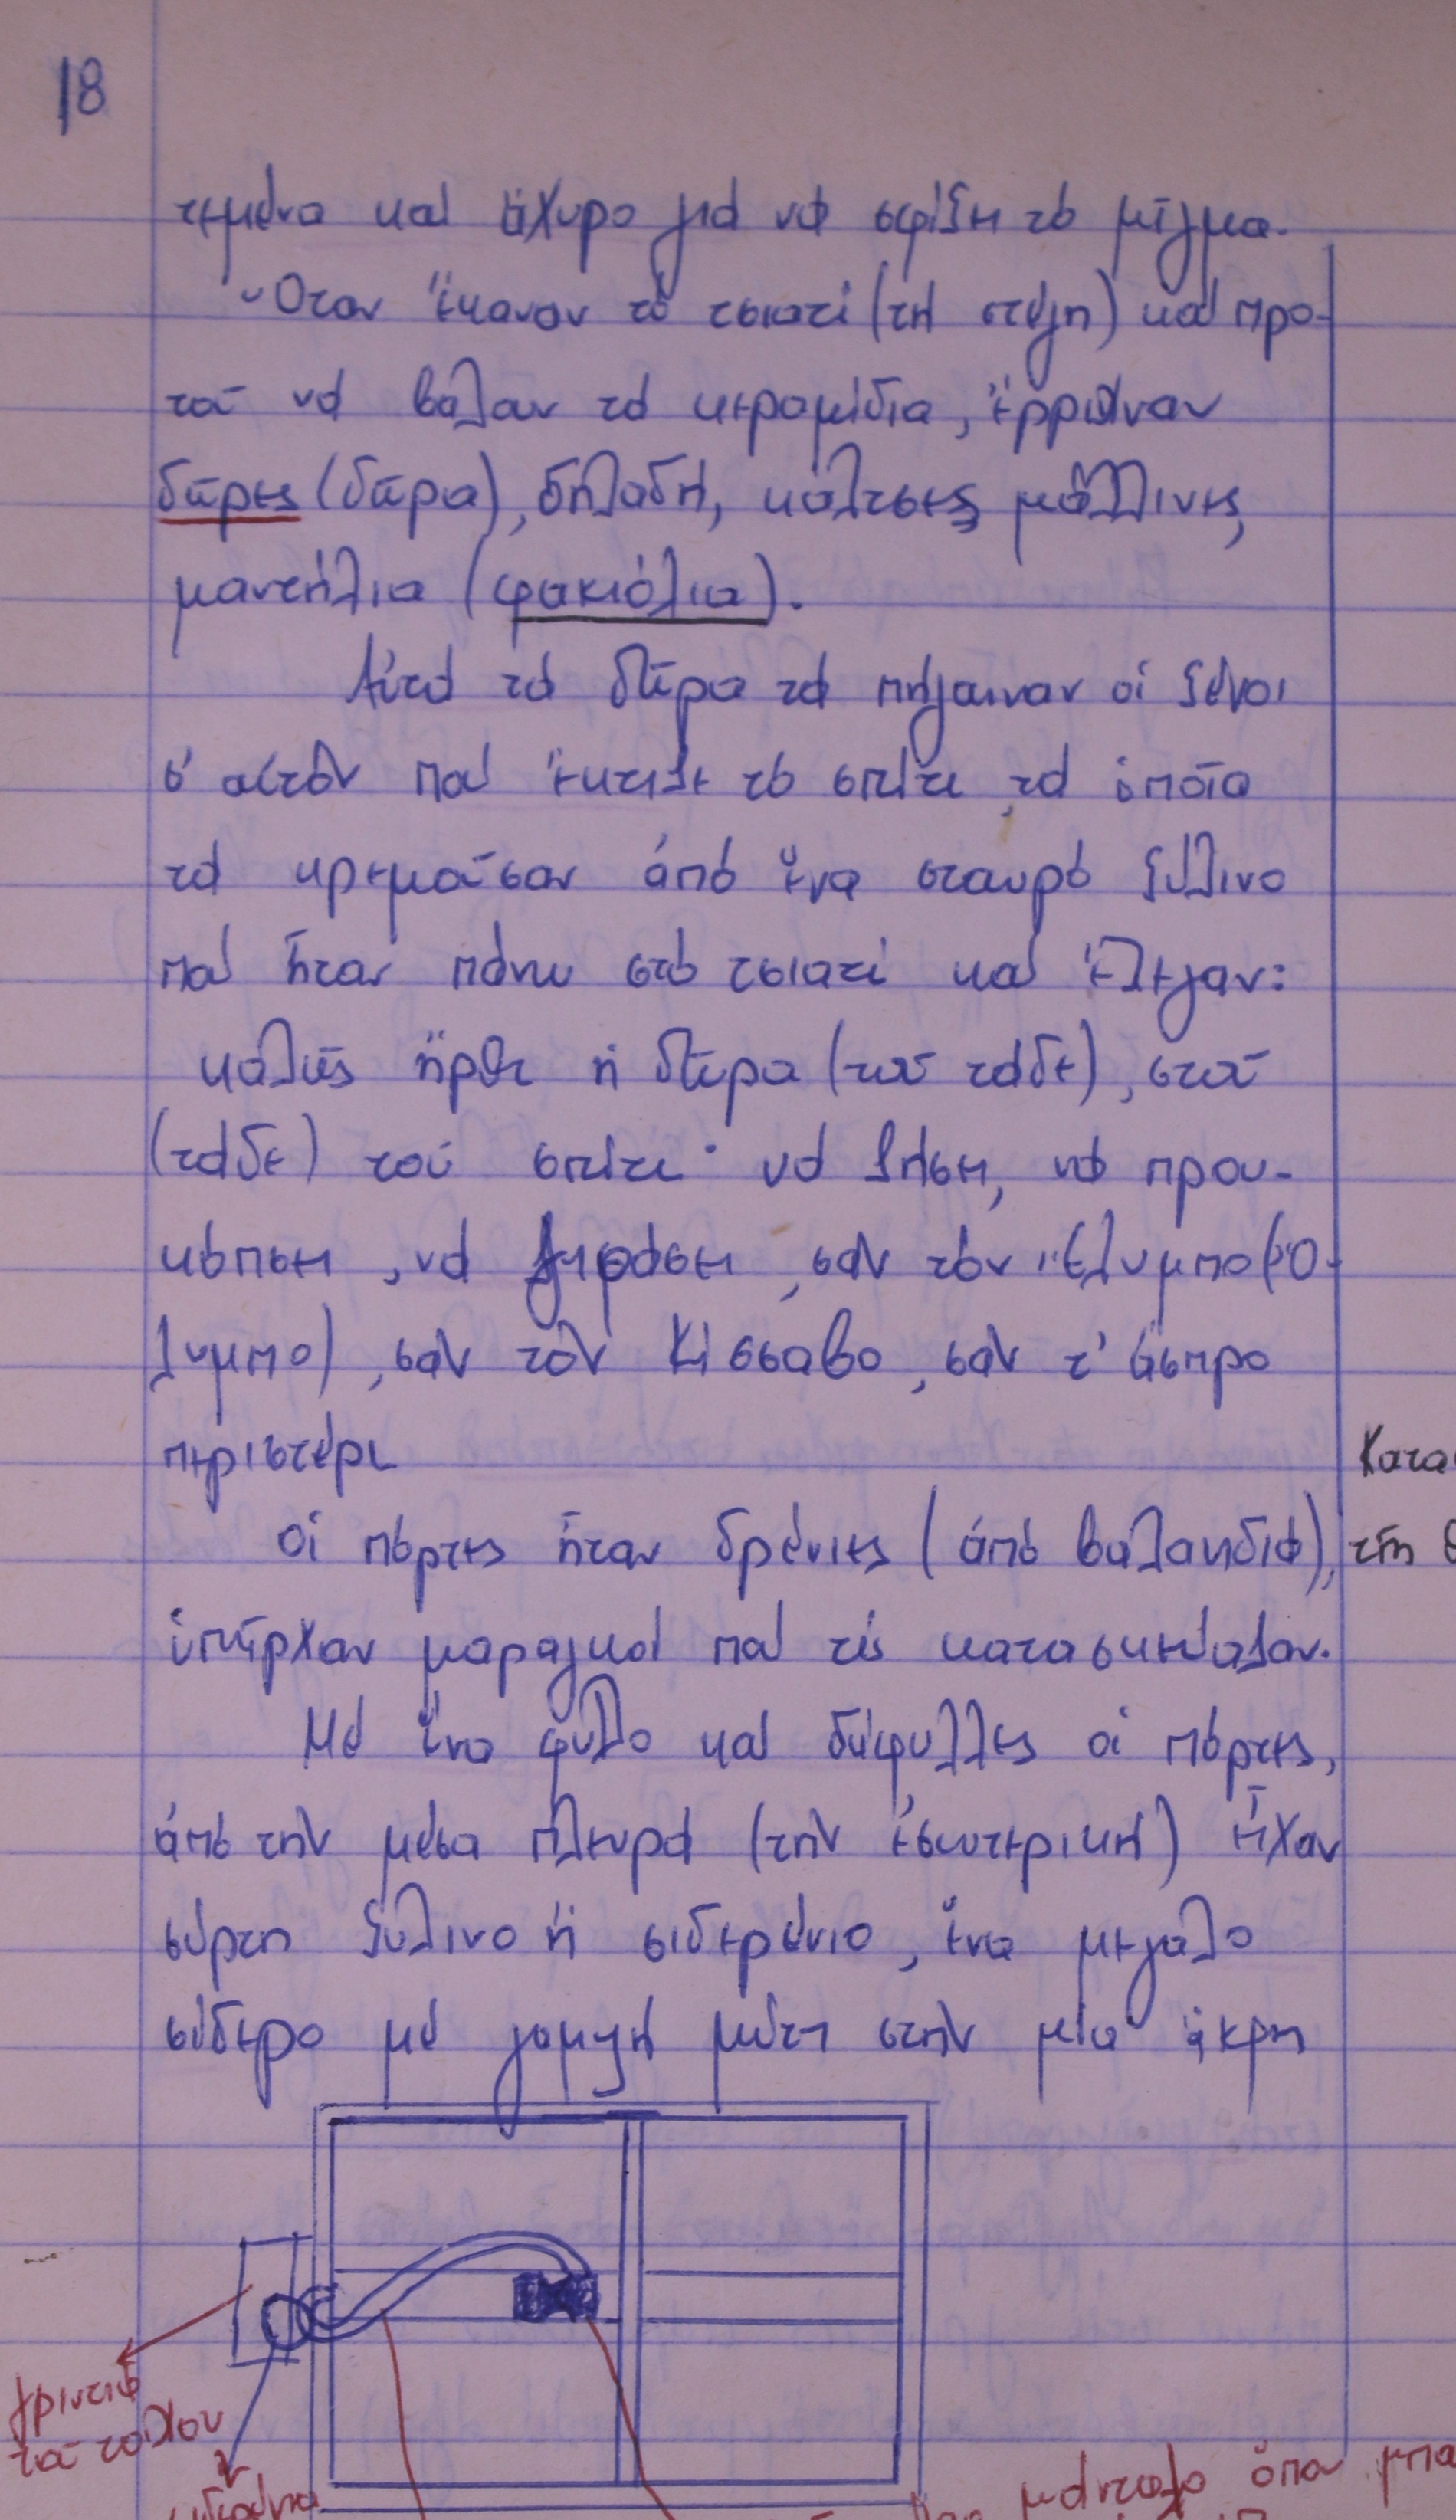 18
τεμένα καί ἄχυρο γιά νά σφίξη τό μῖγμα.
Ὅταν ἔκαναν τό τσιατί (τή στέγη) καί προ-
τοῦ νά βάλουν τά κεραμίδια, ἔρριχναν
δῶρες (δῶρα), δηλαδή, κάλτσες μάλλινες,
μαντήλια (φακιόλια).
Αὐτά τά δῶρα τά πήγαιναν οἱ ξένοι
σ' αὐτόν πού ἔκτιζε τό σπίτι, τά ὁποῖα
τά κρεμοῦσαν ἀπό ἕνα σταυρό ξύλινο
πού ἦταν πάνω στό τσιατί καί ἔλεγαν:
καλῶς ἦρθε ἡ δῶρα (τοῦ τάδε), στοῦ
(τάδε) τού σπίτι· νά ζήση, νά πρου-
κόπση, νά γηράση, σάν τόν Ἔλυμπο (Ὄ-
λυμπο), σάν τόν Κίσσαβο, σάν τ' ἄσπρο
περιστέρι
Οἱ πόρτες ἦταν δρένιες (ἀπό βαλανιδιά),
ὑπῆρχαν μαραγκοί πού τίς κατασκεύαζαν.
Μέ ἕνα φύλλο καί δίφυλλες οἱ πόρτες,
ἀπό τήν μέσα πλευρά (τήν ἐσωτερική) εἶχαν
σύρτη ξύλινο ἤ σιδερένιο, ἕνα μεγάλο
σίδερο μέ γαμψή μύτη στήν μία ἄκρη
Κατα
τῆ
γριντιά
τοῦ τοίχου
μάνταλο ὅπου μπα